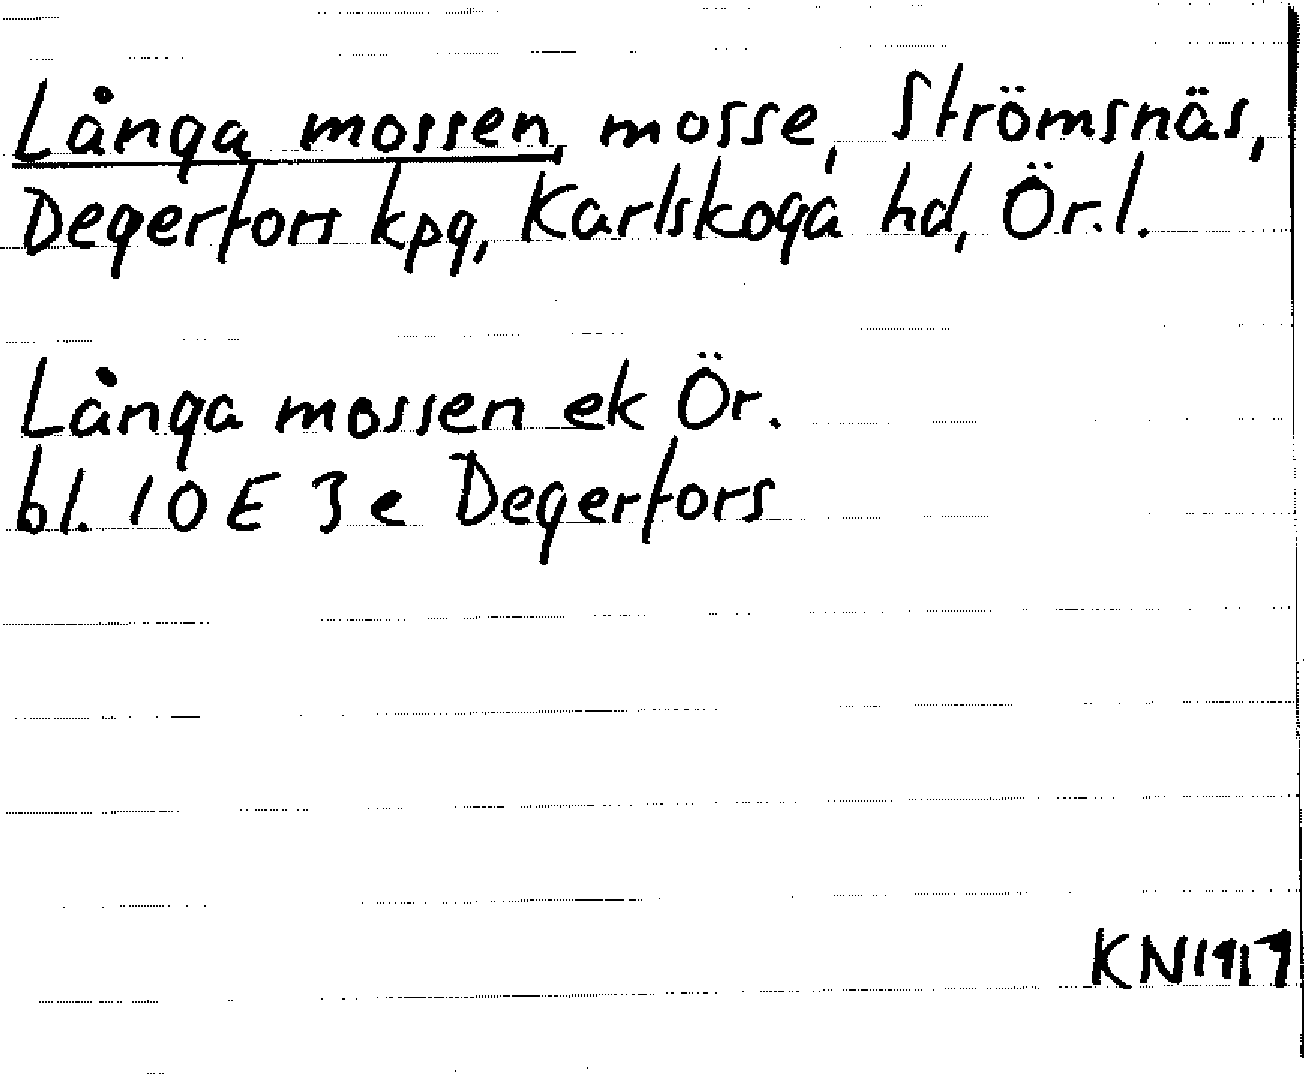 Långa mossen, mosse, Strömsnäs,
Degerfors kpg, Karlskoga hd, Ör.l.
Långa mossen ek Ör.
bl. 10E 3e Degerfors
KN